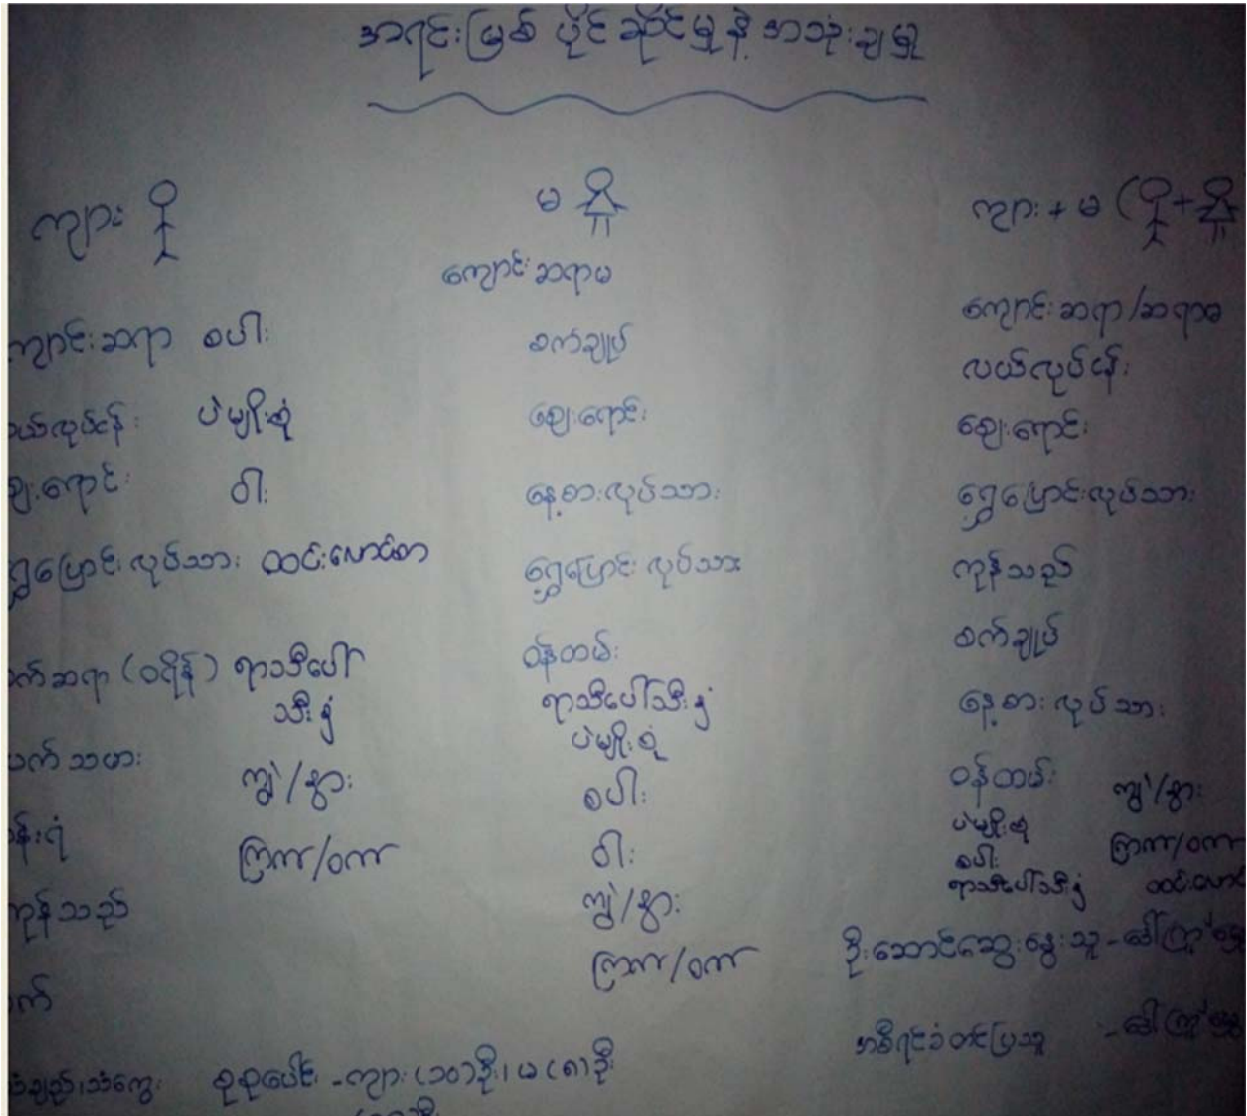 အရင်းမြစ် ပိုင်ဆိုင်မှုနဲ့ အသုံးချမှု
ကျား
ကျောင်းဆရာ စပါး
လယ်လုပ်ငန်း ပဲမျိုးစုံ
ဈေးရောင်း ဝါး
ရွှေ့ပြောင်းလုပ်သား ထင်းလောင်စာ
(ဝရိန်) ရာသီပေါ်
သီးနှံ
လက်သမား ကျွဲ/နွား
ပန်းရံ ကြက်/ဝက်
ကုန်သည်
မ
ကျောင်းဆရာမ
စက်ချုပ်
ဈေးရောင်း
နေ့စားလုပ်သား
ရွှေ့ပြောင်းလုပ်သား
ဝန်ထမ်း
ရာသီပေါ်သီးနှံ
ပဲမျိုးစုံ
စပါး
ဝါး
ကျွဲ/နွား
ကြက်/ဝက်
ကျား + မ ( +
ကျောင်းဆရာ/ဆရာမ
လယ်လုပ်ငန်း
ဈေးရောင်း
ရွှေ့ပြောင်းလုပ်သား
ကုန်သည်
စက်ချုပ်
နေ့စားလုပ်သား
ဝန်ထမ်း ကျွဲ/နွား
ပဲမျိုးစုံ
စပါး ကြက်/ဝက်
ရာသီပေါ်သီးနှံ
ဦးဆောင်ဆွေးနွေးသူ -
အစီရင်ခံတင်ပြသူ -
စုစုပေါင်း - ကျား (၁၀) ဦး၊ မ (၈) ဦး